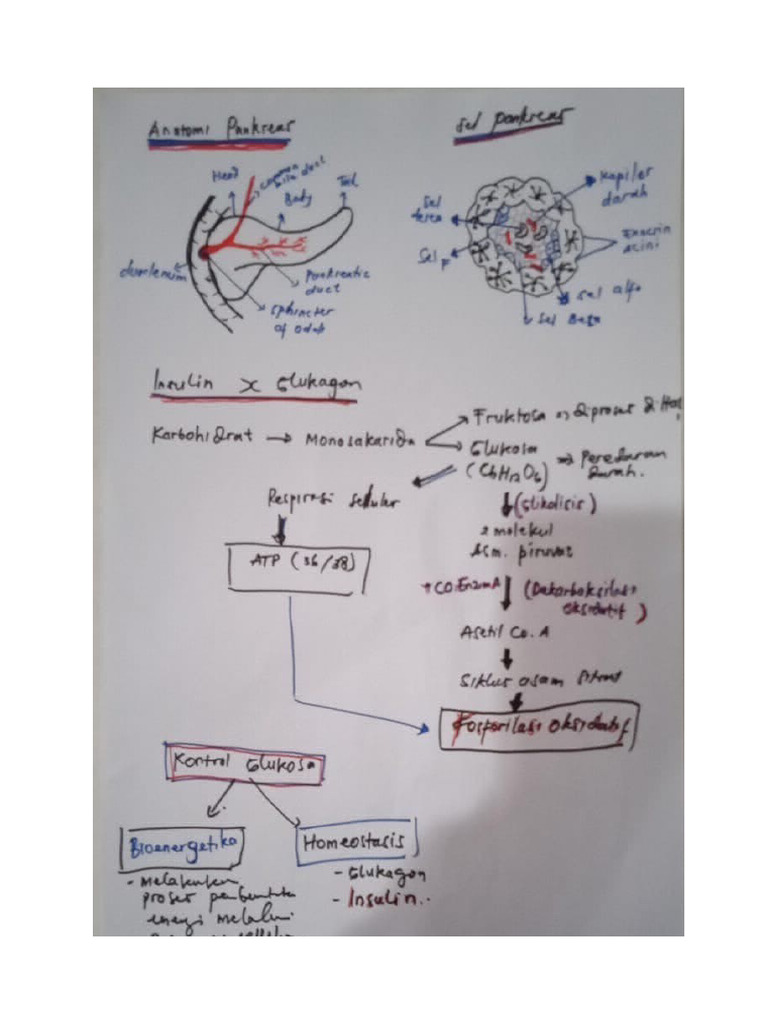 Anatomi Pankreas
Sel pankreas
Head
common
bile duct
Body
Tail
duodenum
Pankreatic
duct
sphincter
of oddi
Sel
Kapiler
darah
Sel F
Exocrin
acini
Sel alfa
Sel Beta
Insulin x Glukagon
Karbohidrat → Monosakarida
Fruktosa => diproses di Hati
Glukosa => Peredaran
(C6H12O6) darah.
Respirasi Selluler
(Glikolisis)
2 molekul
Asm. piruvat
ATP (36/38)
+ CO.EnzmA (Dekarboksilasi
oksidatif)
Asetil Co. A
Siklus asam sitrat
Fosforilasi Oksidatif
Kontrol Glukosa
Bioenergetika
Homeostasis
- Melakukan
proses pembentukan
energi melalui
- Glukagon
- Insulin..